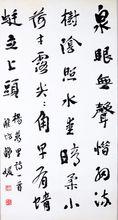 泉眼無聲惜細流
樹陰照水愛晴柔小
荷才露尖尖角早有蜻
蜓立上頭
楊萬里詩